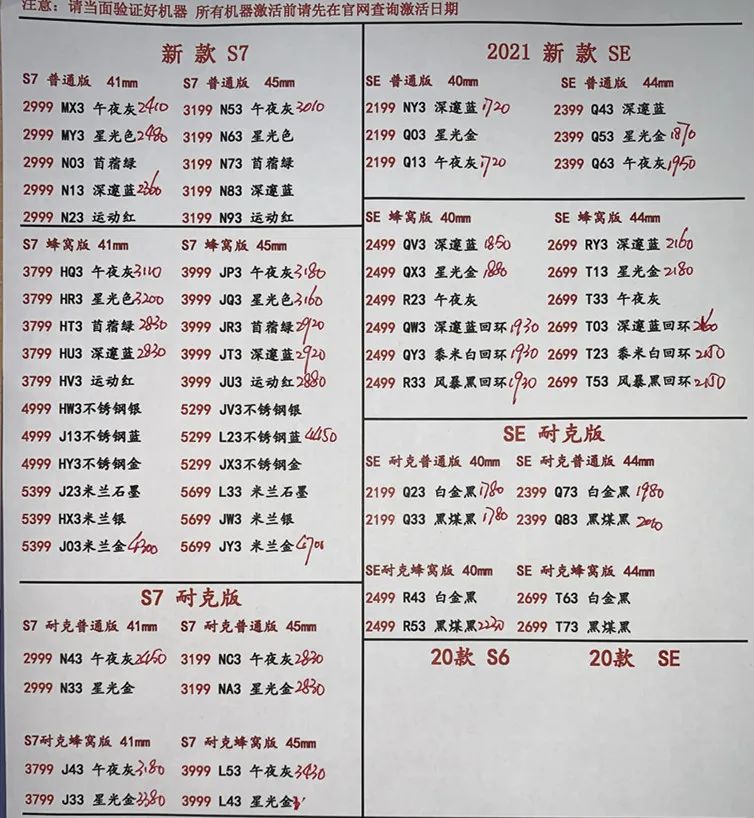 注意：请当面验证好机器 所有机器激活前请先在官网查询激活日期
新 款 S7
S7 普通版 41mm S7 普通版 45mm
2999 MX3 午夜灰2410 3199 N53 午夜灰3010
2999 MY3 星光色2480 3199 N63 星光色
2999 N03 苜蓿绿 3199 N73 苜蓿绿
2999 N13 深邃蓝2360 3199 N83 深邃蓝
2999 N23 运动红 3199 N93 运动红
S7 蜂窝版 41mm S7 蜂窝版 45mm
3799 HQ3 午夜灰3110 3999 JP3 午夜灰3180
3799 HR3 星光色3200 3999 JQ3 星光色3160
3799 HT3 苜蓿绿2830 3999 JR3 苜蓿绿2920
3799 HU3 深邃蓝2830 3999 JT3 深邃蓝2920
3799 HV3 运动红 3999 JU3 运动红2880
4999 HW3不锈钢银 5299 JV3不锈钢银
4999 J13不锈钢蓝 5299 L23不锈钢蓝4450
4999 HY3不锈钢金 5299 JX3不锈钢金
5399 J23米兰石墨 5699 L33 米兰石墨
5399 HX3米兰银 5699 JW3 米兰银
5399 J03米兰金4300 5699 JY3 米兰金
S7 耐克版
S7 耐克普通版 41mm S7 耐克普通版 45mm
2999 N43 午夜灰2450 3199 NC3 午夜灰2830
2999 N33 星光金 3199 NA3 星光金2830
S7耐克蜂窝版 41mm S7 耐克蜂窝版 45mm
3799 J43 午夜灰3180 3999 L53 午夜灰3430
3799 J33 星光金3380 3999 L43 星光金
2021 新 款 SE
SE 普通版 40mm SE 普通版 44mm
2199 NY3 深邃蓝1720 2399 Q43 深邃蓝
2199 Q03 星光金 2399 Q53 星光金1870
2199 Q13 午夜灰1720 2399 Q63 午夜灰1950
SE 蜂窝版 40mm SE 蜂窝版 44mm
2499 QV3 深邃蓝1850 2699 RY3 深邃蓝2160
2499 QX3 星光金1880 2699 T13 星光金2180
2499 R23 午夜灰 2699 T33 午夜灰
2499 QW3 深邃蓝回环1930 2699 T03 深邃蓝回环
2499 QY3 黍米白回环1930 2699 T23 黍米白回环2150
2499 R33 风暴黑回环1930 2699 T53 风暴黑回环2150
SE 耐克版
SE 耐克普通版 40mm SE 耐克普通版 44mm
2199 Q23 白金黑1780 2399 Q73 白金黑1980
2199 Q33 黑煤黑1780 2399 Q83 黑煤黑2010
SE耐克蜂窝版 40mm SE耐克蜂窝版 44mm
2499 R43 白金黑 2699 T63 白金黑
2499 R53 黑煤黑2230 2699 T73 黑煤黑
20款 S6 20款 SE